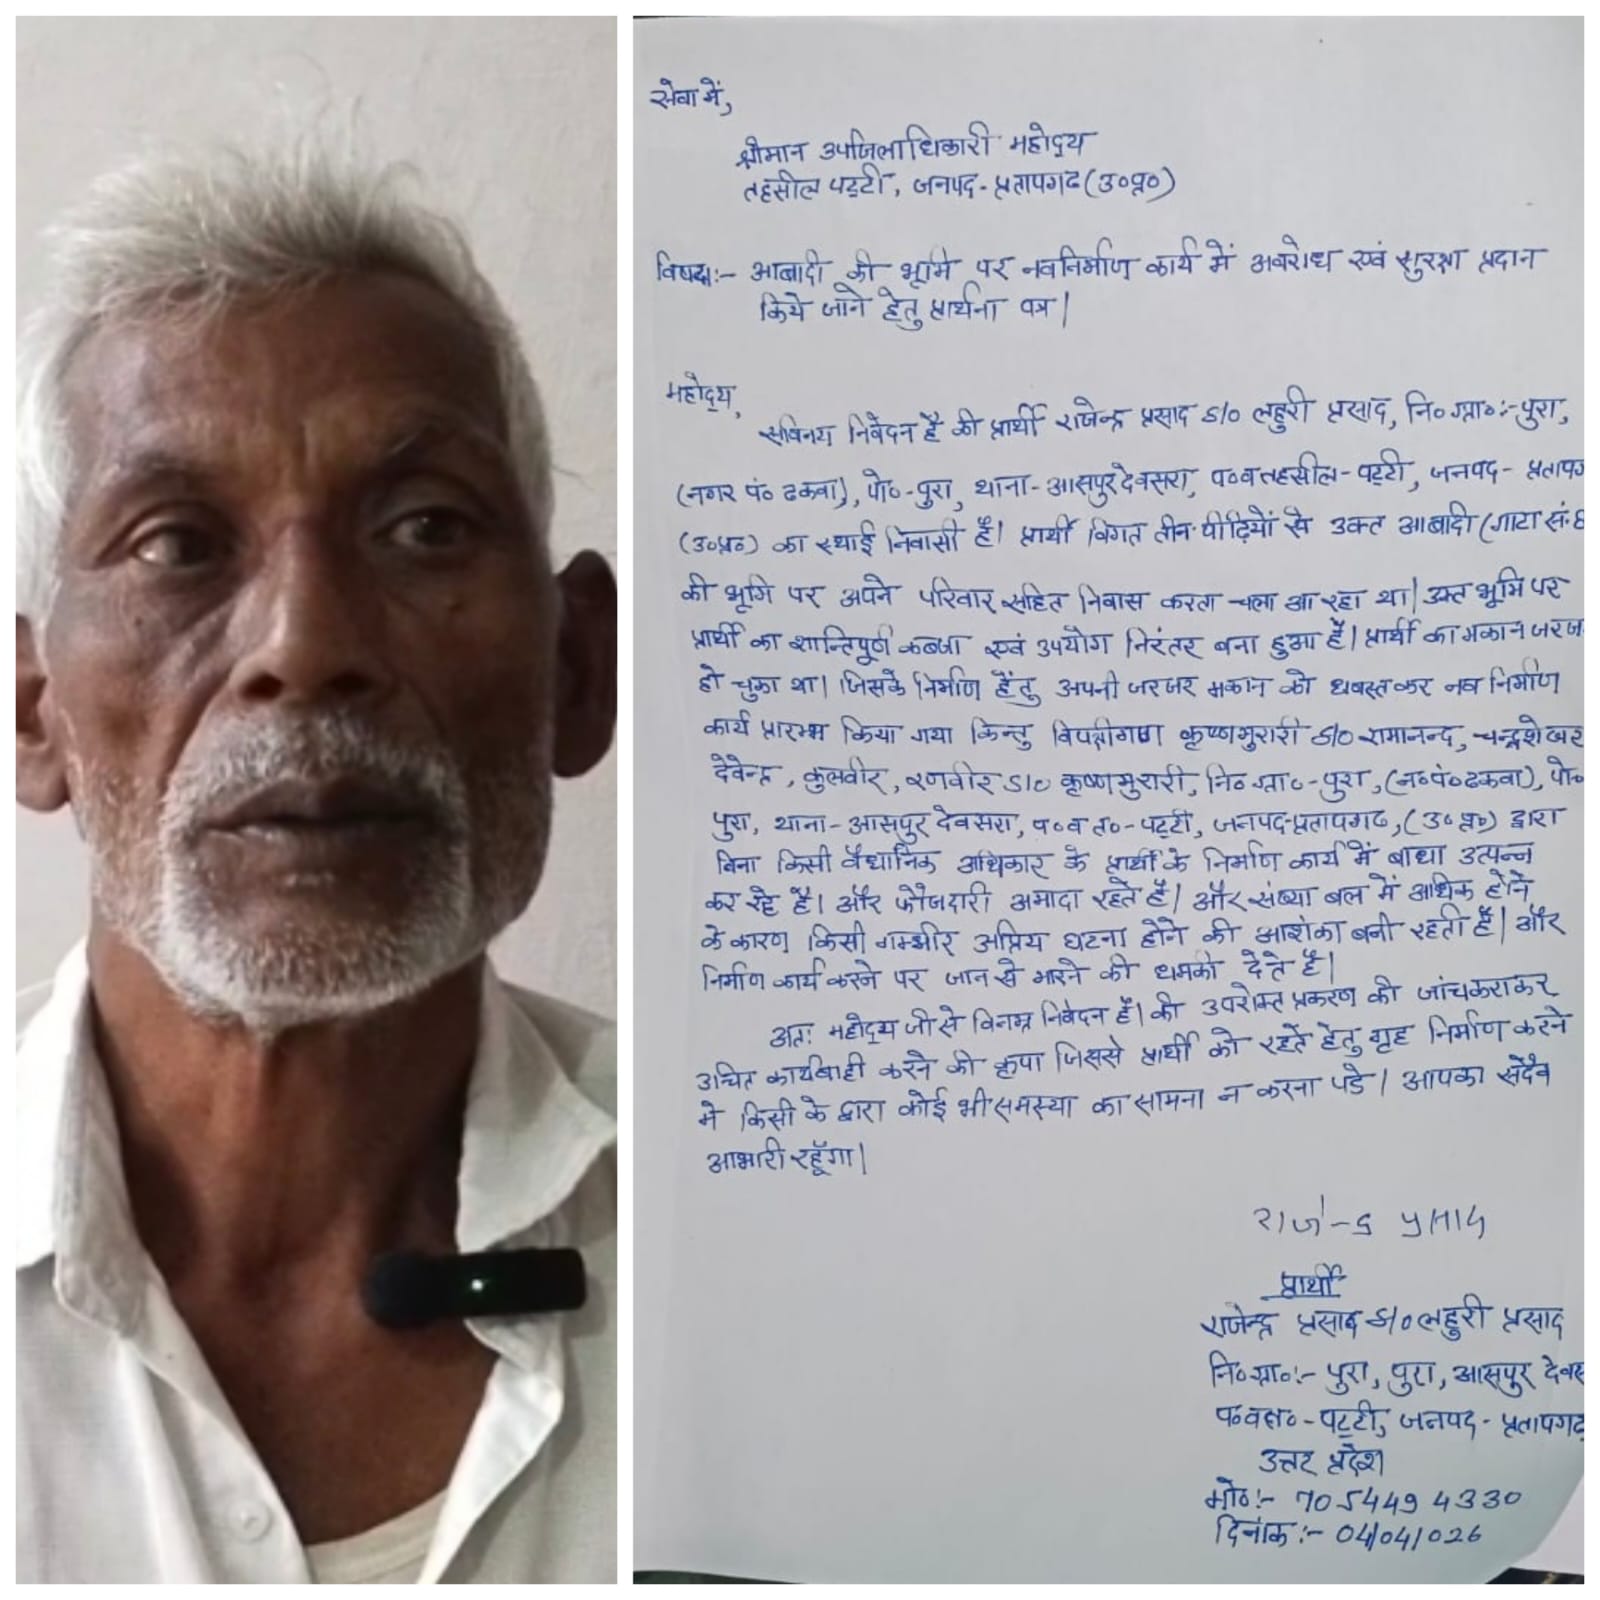 सेवा में,
श्रीमान उपजिलाधिकारी महोद्य
तहसील पट्टी, जनपद- प्रतापगढ (उ०प्र०)
विषयः- आबादी की भूमि पर नवनिर्माण कार्य में अवरोध एवं सुरक्षा प्रदान
किये जाने हेतु प्रार्थना पत्र।
महोद्य,
सविनय निवेदन है की प्रार्थी राजेन्द्र प्रसाद S/O लहुरी प्रसाद, नि० ग्रा०:-पुरा,
(नगर पं० ढकवा), पो०-पुरा, थाना-आसपुर देवसरा, प०व तहसील-पट्टी, जनपद- प्रतापग
(उ०प्र०) का स्थाई निवासी हैं। प्रार्थी विगत तीन पीढ़ियों से उक्त आबादी (गाटा सं.
की भूमि पर अपने परिवार सहित निवास करता चला आ रहा था। उक्त भूमि पर
प्रार्थी का शान्तिपूर्ण कब्जा एवं उपयोग निरंतर बना हुआ हैं। प्रार्थी का मकान जरज
हो चुका था। जिसके निर्माण हेंतु अपनी जरजर मकान को धवस्त कर नव निर्माण
कार्य प्रारम्भ किया गया किन्तु विपक्षीगण कृष्णमुरारी S/O रामानन्द, चन्द्रशेखर
देवेन्द्र, कुलवीर, रणवीर S/O कृष्णमुरारी, नि० ग्रा०-पुरा, (न०पं०ढकवा), पो०
पुरा, थाना-आसपुर देवसरा, प०व त०-पट्टी, जनपद-प्रतापगढ, (उ०प्र०) द्वारा
बिना किसी वैधानिक अधिकार के प्रार्थी के निर्माण कार्य में बाधा उत्पन्न
कर रहे हैं। और फौजदारी अमादा रहते हैं। और संख्या बल में अधिक होने
के कारण किसी गम्भीर अप्रिय घटना होने की आशंका बनी रहती हैं। और
निर्माण कार्य करने पर जान से मारने की धमकी देते हैं।
अतः महोद्य जी से विनम्र निवेदन हैं। की उपरोक्त प्रकरण की जांच कराकर
उचित कार्यवाही करने की कृपा जिससे प्रार्थी को रहने हेतु गृह निर्माण करने
में किसी के द्वारा कोई भी समस्या का सामना न करना पडे। आपका सदैव
आभारी रहूँगा।
राजेन्द्र प्रसाद
प्रार्थी
राजेन्द्र प्रसाद S/O लहुरी प्रसाद
नि०ग्रा०:- पुरा, पुरा, आसपुर देवस
प०वत०-पट्टी, जनपद- प्रतापगढ़
उत्तर प्रदेश
मो०:- 7054494330
दिनांक:- 04/04/026